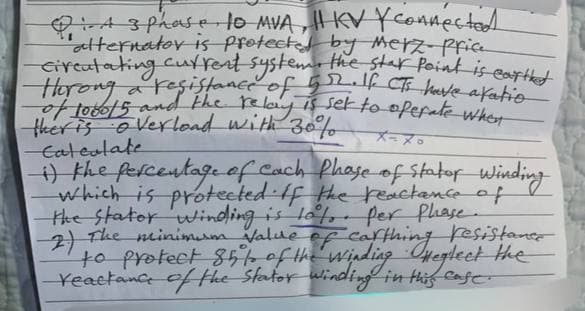 Q:- A 3 phase, 10 MVA, 11 KV Y connected
alternator is protected by Merz-price
circulating current system. the star point is earthed
throng a resistance of 5Ω. If CTs have a ratio
of 1000/5 and the relay is set to operate when
ther is overload with 30%
X = 7.
Calculate
i) the percentage of each Phase of stator winding
which is protected. If the reactance of
the stator winding is 10%. Per Phase.
2) The minimum value of earthing resistance
to protect 85% of the winding. Neglect the
reactance of the stator winding in this case.